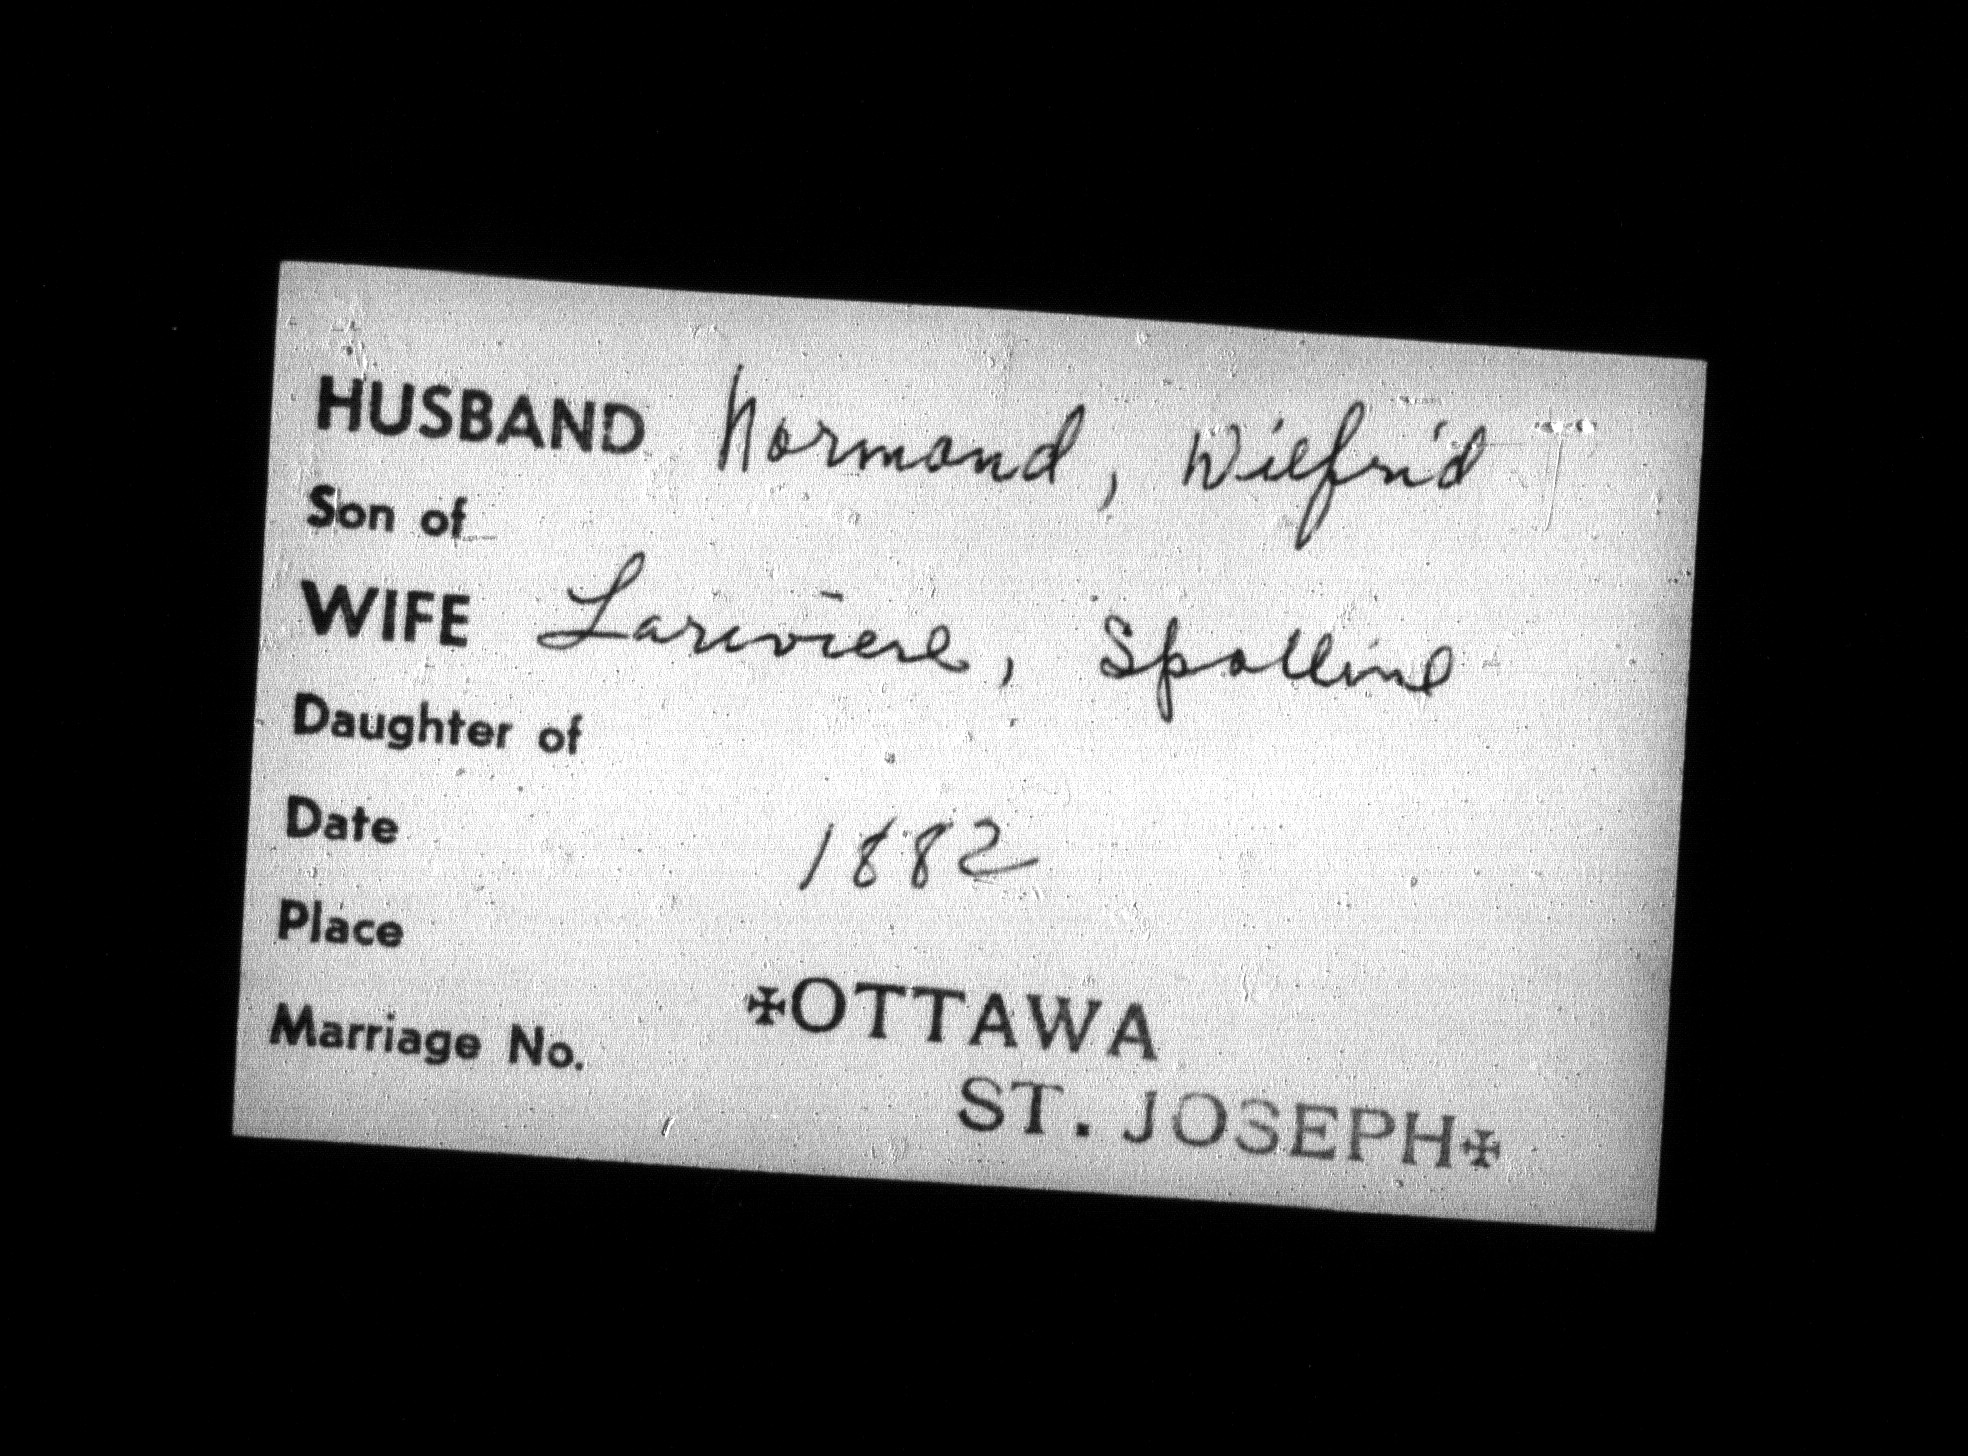 HUSBAND Normand, Wilfrid
Son of
WIFE Lariviere, Spolline
Daughter of
Date 1882
Place
✠OTTAWA
Marriage No.
ST. JOSEPH✠